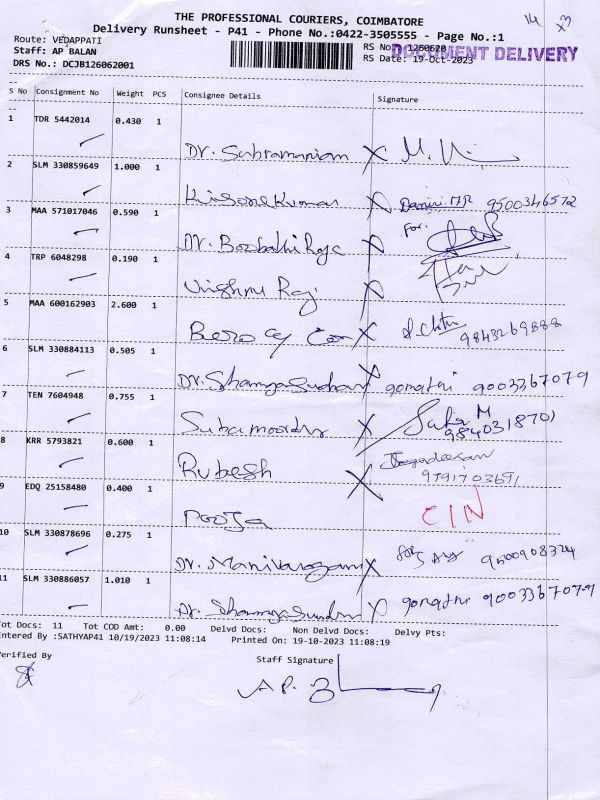 THE PROFESSIONAL COURIERS, COIMBATORE
14
x3
Delivery Runsheet - P41 - Phone No.:0422-3505555 - Page No.:1
Route: VEDAPPATI
RS No : 1260620
DOCUMENT DELIVERY
Staff: AP BALAN
RS Date: 19-Oct-2023
DRS No.: DCJB126062001
S No Consignment No Weight PCS Consignee Details Signature
1 TDR 5442014 0.430 1
Dr. Subramaniam X
2 SLM 330859649 1.000 1
X 9500346572
3 MAA 571017046 0.590 1
For.
Dr. X
4 TRP 6048298 0.190 1
Vishnu Raj X
5 MAA 600162903 2.600 1
X 9843269888
6 SLM 330884113 0.505 1
Dr. X gomathi 9003367079
7 TEN 7604948 0.755 1
X Suba M
9840318701
8 KRR 5793821 0.600 1
Rubesh X
9791703691
9 EDQ 25158480 0.400 1
Pooja CIN
10 SLM 330878696 0.275 1
Dr. X 9500908324
11 SLM 330886057 1.010 1
Dr. X gomathi 9003367079
Tot Docs: 11 Tot COD Amt: 0.00 Delvd Docs: Non Delvd Docs: Delvy Pts:
Entered By :SATHYAP41 10/19/2023 11:08:14 Printed On: 19-10-2023 11:08:19
Verified By
Staff Signature
A.P. B